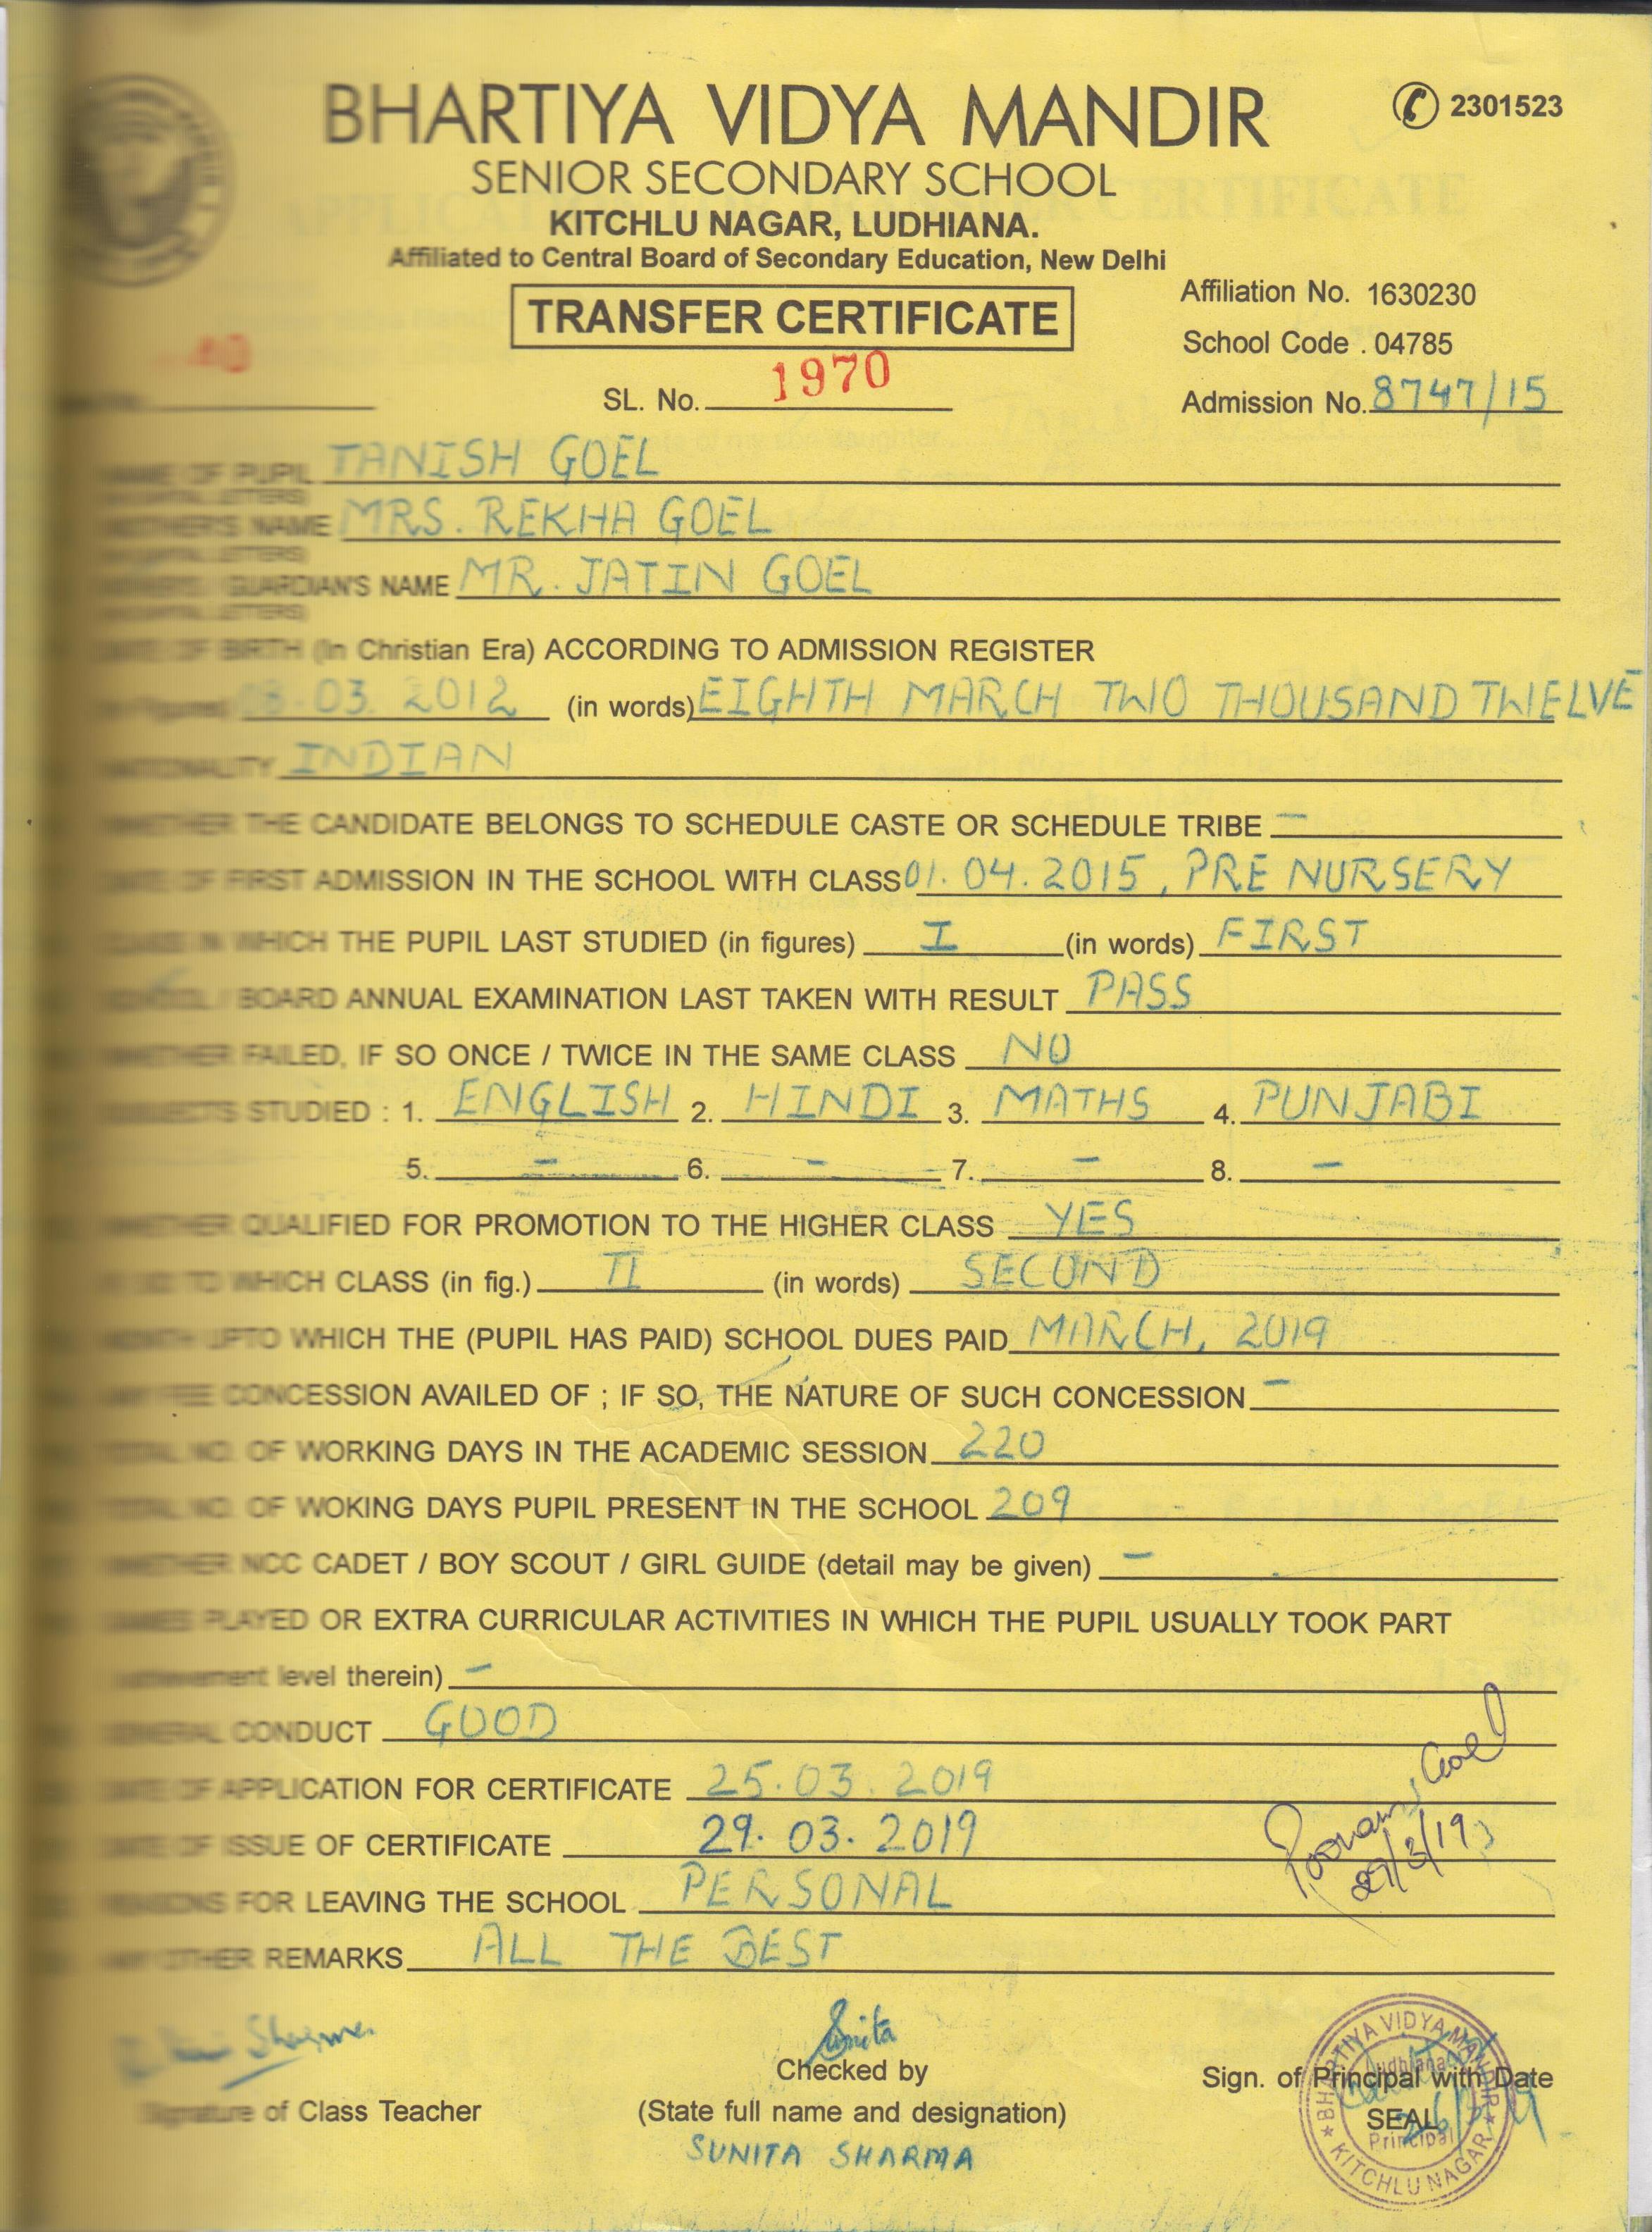 BHARTIYA VIDYA MANDIR
2301523
SENIOR SECONDARY SCHOOL
KITCHLU NAGAR, LUDHIANA.
Affiliated to Central Board of Secondary Education, New Delhi
TRANSFER CERTIFICATE
Affiliation No. 1630230
School Code . 04785
SL. No. 1970
Admission No. 8747/15
NAME OF PUPIL TANISH GOEL
MOTHER'S NAME MRS. REKHA GOEL
GUARDIAN'S NAME MR. JATIN GOEL
DATE OF BIRTH (In Christian Era) ACCORDING TO ADMISSION REGISTER
(in Figures) 08.03.2012 (in words) EIGHTH MARCH TWO THOUSAND TWIELVE
NATIONALITY INDIAN
WHETHER THE CANDIDATE BELONGS TO SCHEDULE CASTE OR SCHEDULE TRIBE –
DATE OF FIRST ADMISSION IN THE SCHOOL WITH CLASS 01.04.2015, PRE NURSERY
CLASS IN WHICH THE PUPIL LAST STUDIED (in figures) I (in words) FIRST
SCHOOL / BOARD ANNUAL EXAMINATION LAST TAKEN WITH RESULT PASS
WHETHER FAILED, IF SO ONCE / TWICE IN THE SAME CLASS NO
SUBJECTS STUDIED : 1. ENGLISH 2. HINDI 3. MATHS 4. PUNJABI
5. – 6. – 7. – 8. –
WHETHER QUALIFIED FOR PROMOTION TO THE HIGHER CLASS YES
IF SO TO WHICH CLASS (in fig.) II (in words) SECOND
MONTH UPTO WHICH THE (PUPIL HAS PAID) SCHOOL DUES PAID MARCH, 2019
ANY FEE CONCESSION AVAILED OF ; IF SO, THE NATURE OF SUCH CONCESSION –
TOTAL NO. OF WORKING DAYS IN THE ACADEMIC SESSION 220
TOTAL NO. OF WOKING DAYS PUPIL PRESENT IN THE SCHOOL 209
WHETHER NCC CADET / BOY SCOUT / GIRL GUIDE (detail may be given) –
GAMES PLAYED OR EXTRA CURRICULAR ACTIVITIES IN WHICH THE PUPIL USUALLY TOOK PART
achievement level therein) –
GENERAL CONDUCT GOOD
DATE OF APPLICATION FOR CERTIFICATE 25.03.2019
DATE OF ISSUE OF CERTIFICATE 29.03.2019
Poonam Goel
27/3/19
REASONS FOR LEAVING THE SCHOOL PERSONAL
ANY OTHER REMARKS ALL THE BEST
Sharma
Sunita
Checked by
Sign. of Principal with Date
Signature of Class Teacher
(State full name and designation)
SEAL
SUNITA SHARMA
BHARTIYA VIDYA MANDIR
Ludhiana
Principal
KITCHLU NAGAR